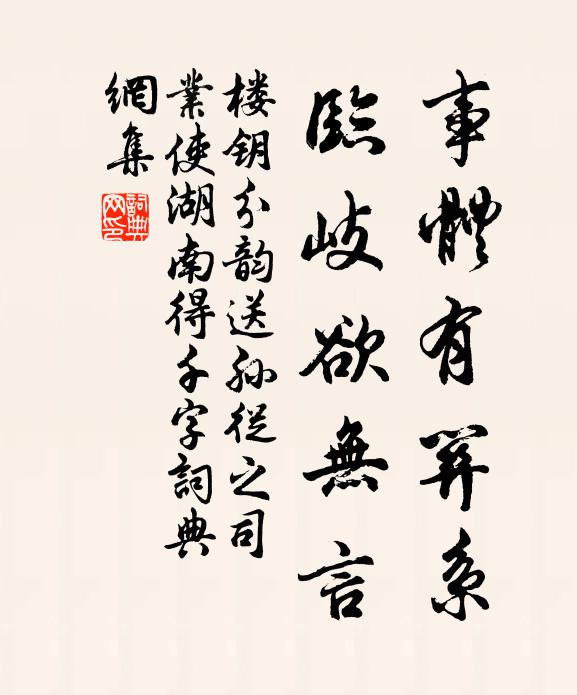 事體有關系
臨岐欲無言
楼钥分韵送孫從之司
業使湖南得千字詞典
網集
詞典
网印